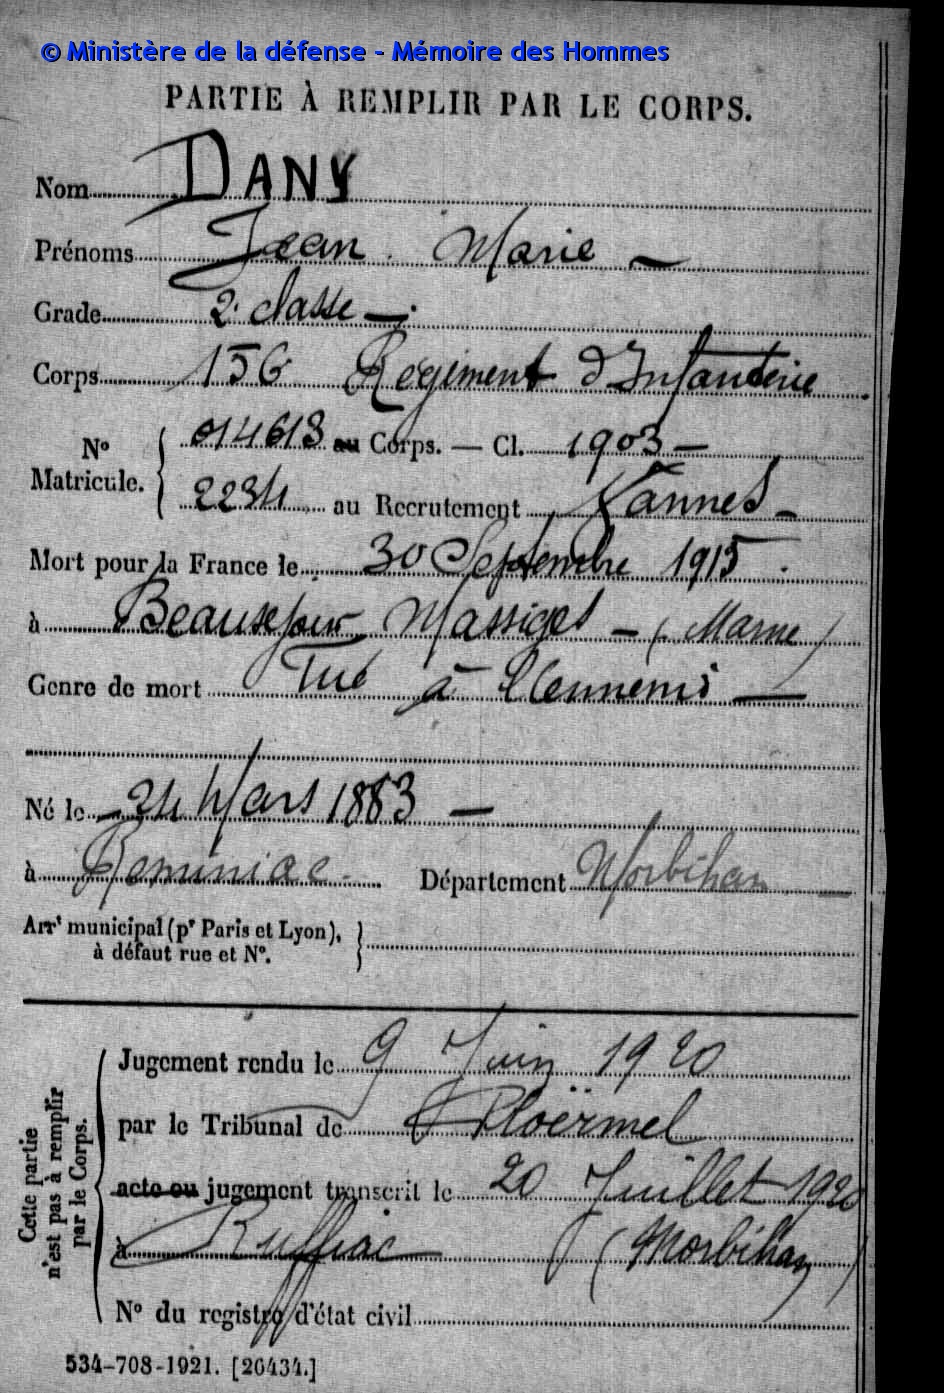 © Ministère de la défense - Mémoire des Hommes
PARTIE À REMPLIR PAR LE CORPS.
Nom DANY
Prénoms Jean Marie
Grade 2e classe
Corps 156 Régiment d'Infanterie
Nº Matricule. { 014613 au Corps. — Cl. 1903
2234 au Recrutement Vannes
Mort pour la France le 30 Septembre 1915
à Beauséjour Massiges - (Marne)
Genre de mort Tué à l'ennemi
Né le 24 Mars 1883
à Reminiac Département Morbihan
Arrt municipal (pr Paris et Lyon), à défaut rue et Nº. }
Cette partie n'est pas à remplir par le Corps.
Jugement rendu le 9 Juin 1920
par le Tribunal de Ploërmel
acte ou jugement transcrit le 20 Juillet 1920
à Ruffiac (Morbihan)
Nº du registre d'état civil
534-708-1921. [26434.]